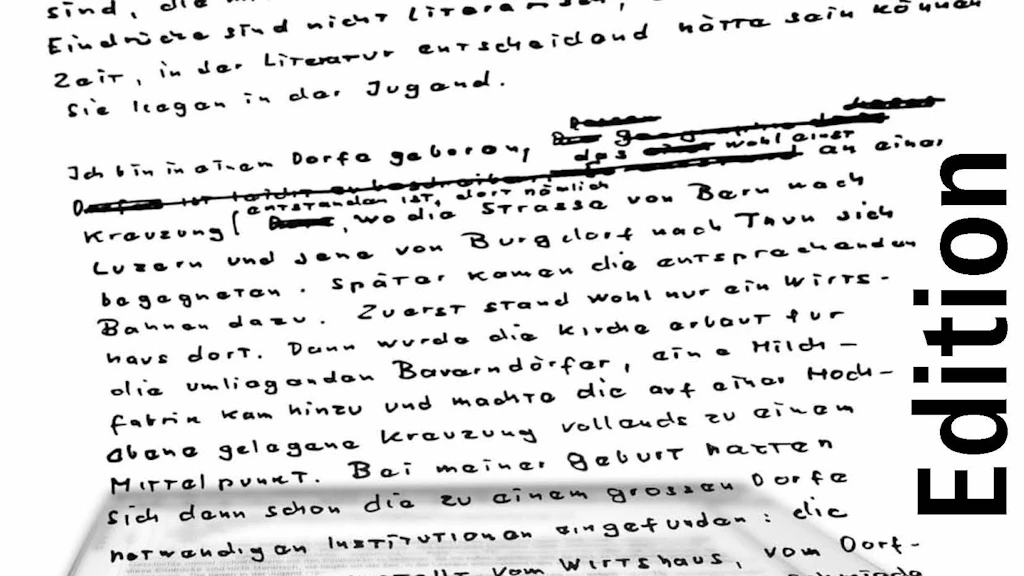 sind, die
Eindrücke sind nicht literarisch,
Zeit, in der Literatur entscheidend hätte sein können
Sie liegen in der Jugend.
Ich bin in einem Dorfe geboren,
das wohl einst an einer
ist leicht zu beschreiben
entstanden ist, dort nämlich
Kreuzung, wo die Strasse von Bern nach
Luzern und jene von Burgdorf nach Thun sich
begegneten. Später kamen die entsprechenden
Bahnen dazu. Zuerst stand wohl nur ein Wirts-
haus dort. Dann wurde die Kirche erbaut für
die umliegenden Bauerndörfer, eine Milch-
fabrik kam hinzu und machte die auf einer Hoch-
ebene gelegene Kreuzung vollends zu einem
Mittelpunkt. Bei meiner Geburt hatten
sich denn schon die zu einem grossen Dorfe
notwendigen Institutionen eingefunden: die
vom Wirtshaus, vom Dorf-
Edition